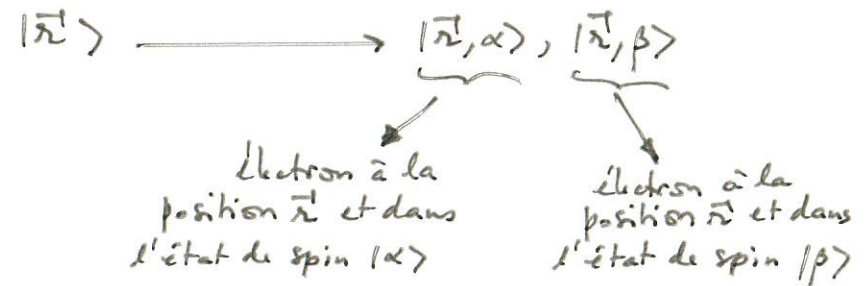 |r⃗ 〉 ⟶ |r⃗, α〉, |r⃗, β〉
électron à la
position r⃗ et dans
l'état de spin |α〉
électron à la
position r⃗ et dans
l'état de spin |β〉